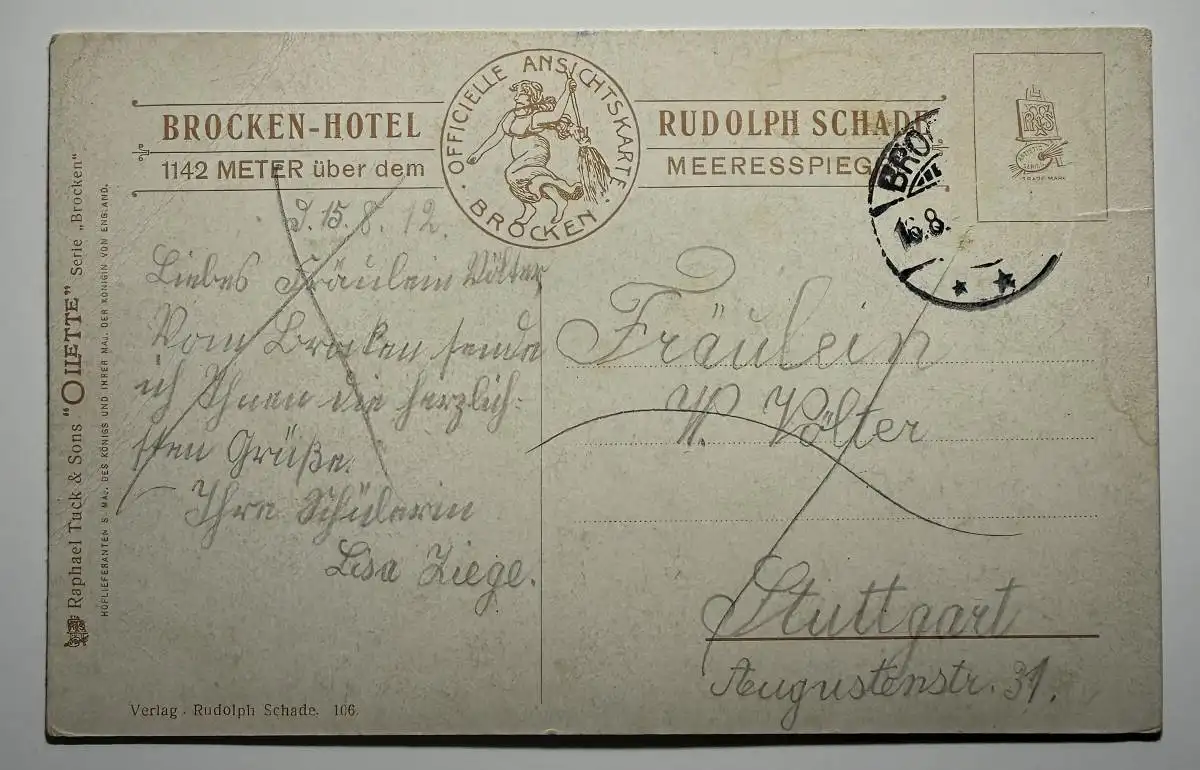 OFFICIELLE ANSICHTSKARTE
BROCKEN
BROCKEN-HOTEL
1142 METER über dem
RUDOLPH SCHADE
MEERESSPIEGE
BRO
16.8.
TRADE MARK
Raphael Tuck & Sons "OILETTE" Serie „Brocken"
HOFLIEFERANTEN S. MAJ. DES KÖNIGS UND IHRER MAJ. DER KÖNIGIN VON ENGLAND.
15.8.12.
Liebes Fräulein Völter
Vom Brocken sende
ich Ihnen die herzlich-
sten Grüße.
Ihre Schülerin
Lisa Ziege.
Fräulein
Völter
Stuttgart
Augustenstr. 31.
Verlag . Rudolph Schade. 106.